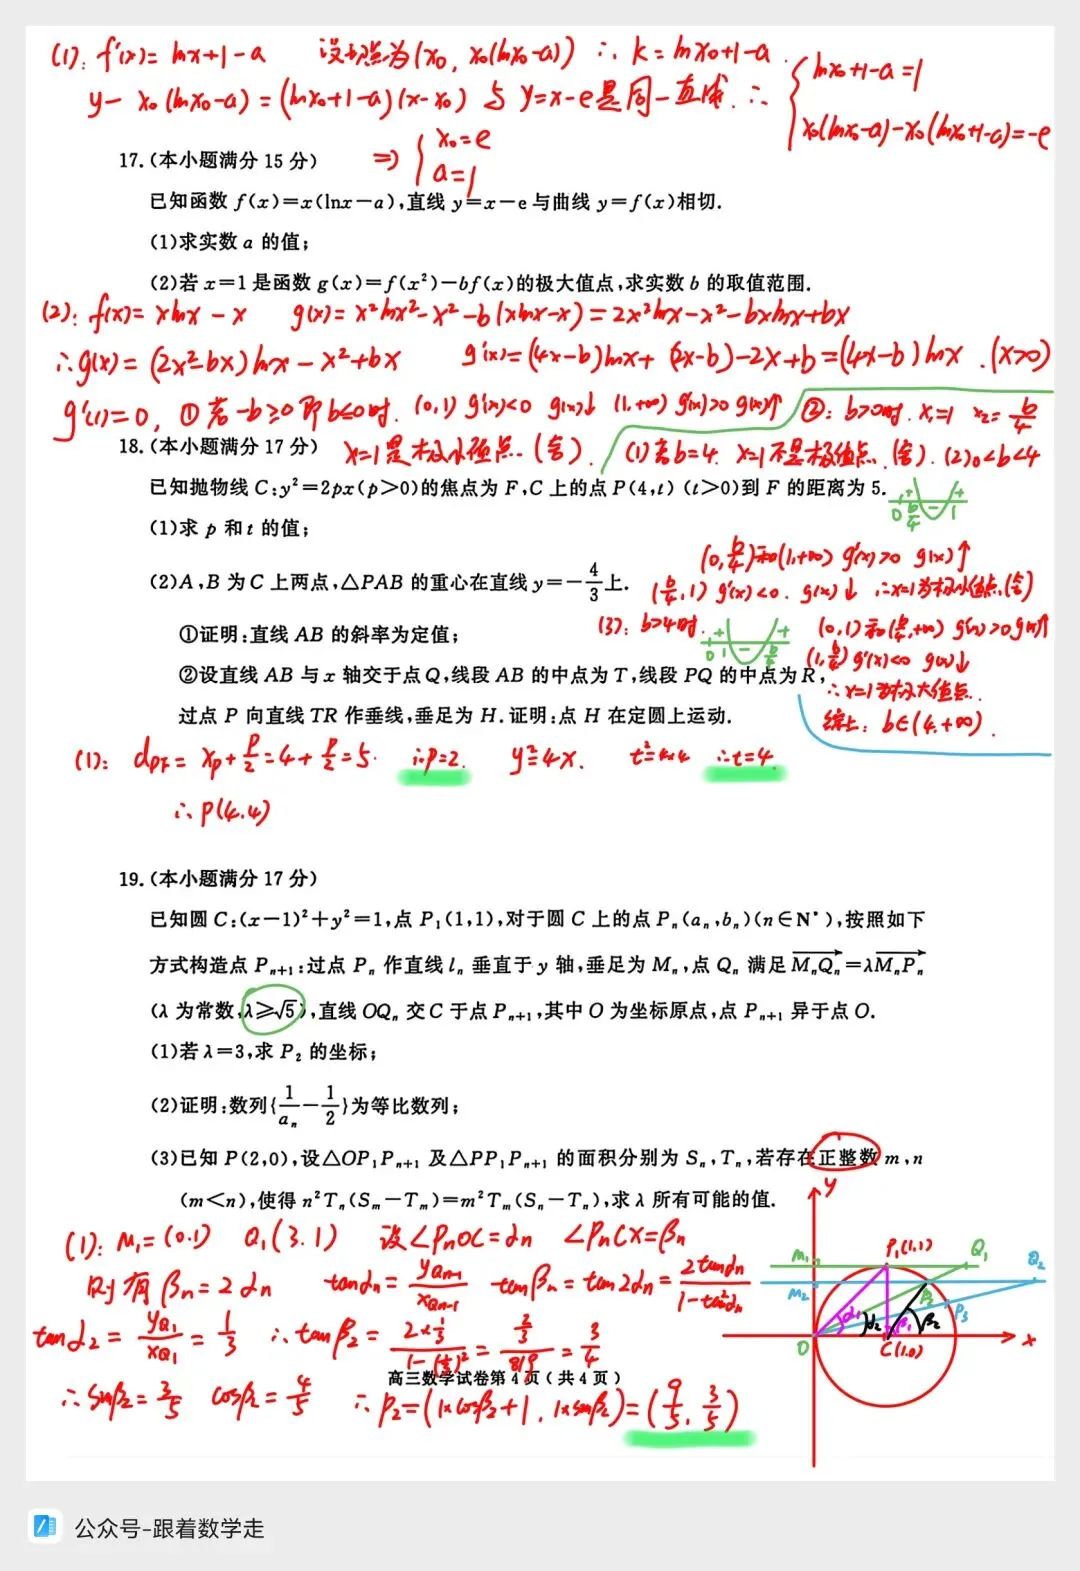 (1): f'(x)= lnx+1-a 设切点为(x₀, x₀(lnx₀-a)) ∴ k= lnx₀+1-a.
y- x₀(lnx₀-a) = (lnx₀+1-a)(x-x₀) 与 y=x-e是同一直线. ∴ { lnx₀+1-a=1
x₀(lnx₀-a)-x₀(lnx₀+1-a)=-e
⇒ { x₀=e
a=1
17.(本小题满分 15 分)
已知函数 f(x)=x(lnx-a),直线 y=x-e 与曲线 y=f(x)相切.
(1)求实数 a 的值;
(2)若 x=1 是函数 g(x)=f(x²)-bf(x)的极大值点,求实数 b 的取值范围.
(2): f(x)= xlnx - x g(x)= x²lnx²-x²-b(xlnx-x)=2x²lnx-x²-bxlnx+bx
∴g(x)= (2x²-bx)lnx - x²+bx g'(x)=(4x-b)lnx+ (2x-b)-2x+b=(4x-b)lnx .(x>0)
g'(1)=0, ① 若 -b≥0 即 b≤0时. (0,1) g'(x)<0 g(x)↓ (1,+∞) g'(x)>0 g(x)↑ ②: b>0时. x₁=1 x₂= b/4
18.(本小题满分 17 分) x=1是极小值点.(舍). (1)若b=4. x=1不是极值点.(舍). (2)0<b<4
已知抛物线 C:y²=2px(p>0)的焦点为 F,C 上的点 P(4,t) (t>0)到 F 的距离为 5.
+ - +
0 b/4 1
(1)求 p 和 t 的值;
(0, b/4)和(1,+∞) g'(x)>0 g(x)↑
(2)A,B 为 C 上两点,△PAB 的重心在直线 y=-4/3上. (b/4,1) g'(x)<0. g(x)↓ ∴x=1为极小值点.(舍)
①证明:直线 AB 的斜率为定值; (3): b>4时. + - + 0 1 b/4 (0,1)和(b/4,+∞) g'(x)>0 g(x)↑
(1,b/4) g'(x)<0 g(x)↓
②设直线 AB 与 x 轴交于点 Q,线段 AB 的中点为 T,线段 PQ 的中点为 R,
∴x=1为极大值点.
过点 P 向直线 TR 作垂线,垂足为 H.证明:点 H 在定圆上运动. 综上: b∈(4,+∞).
(1): d_PF= x_P+p/2=4+p/2=5. ∴p=2. y²=4x. t²=4×4 ∴t=4.
∴P(4.4)
19.(本小题满分 17 分)
已知圆 C:(x-1)²+y²=1,点 P₁(1,1),对于圆 C 上的点 Pₙ(aₙ,bₙ)(n∈N*),按照如下
方式构造点 Pₙ₊₁:过点 Pₙ 作直线 lₙ 垂直于 y 轴,垂足为 Mₙ,点 Qₙ 满足 MₙQₙ=λMₙPₙ
(λ 为常数,λ≥√5),直线 OQₙ 交 C 于点 Pₙ₊₁,其中 O 为坐标原点,点 Pₙ₊₁ 异于点 O.
(1)若 λ=3,求 P₂ 的坐标;
(2)证明:数列{1/aₙ-1/2}为等比数列;
(3)已知 P(2,0),设△OP₁Pₙ₊₁ 及△PP₁Pₙ₊₁ 的面积分别为 Sₙ,Tₙ,若存在正整数 m,n
(m<n),使得 n²Tₙ(Sₘ-Tₘ)=m²Tₘ(Sₙ-Tₙ),求 λ 所有可能的值.
(1): M₁=(0.1) Q₁(3.1) 设∠PₙOC=αₙ ∠PₙCX=βₙ
则有 βₙ=2αₙ tanαₙ= yQₙ₋₁/xQₙ₋₁ tanβₙ=tan2αₙ= 2tanαₙ/(1-tan²αₙ)
tanα₂= yQ₁/xQ₁ = 1/3 ∴tanβ₂= (2×1/3)/(1-(1/3)²) = (2/3)/(8/9) = 3/4
高三数学试卷第 4 页(共 4 页)
∴ sinβ₂=3/5 cosβ₂=4/5 ∴ P₂=(1×cosβ₂+1, 1×sinβ₂)=(9/5, 3/5)
y
M₁ P₁(1,1) Q₁
M₂ P₂ Q₂
α₁ α₂ β₁ β₂ P₃
O C(1.0) x
公众号-跟着数学走